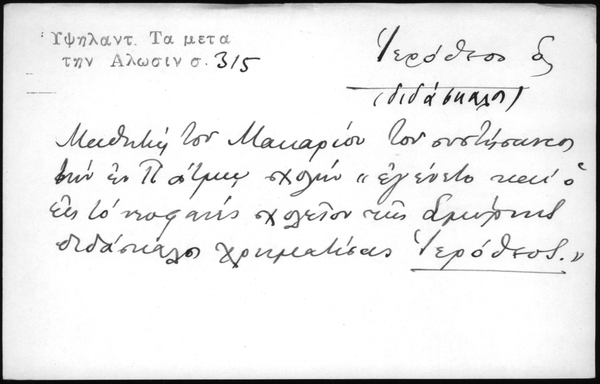 Ὑψηλαντ. Τα μετα
την Αλωσιν σ. 315
Ἱερόθεος
(διδάσκαλος)
Μαθητής του Μακαρίου του συστήσαντος
τήν ἐν Πάτμῳ σχολήν «ἐγένετο καί ὁ
εἰς τό νεοφανές σχολεῖον τῆς Σμύρνης
διδάσκαλος χρηματίσας Ἱερόθεος.»